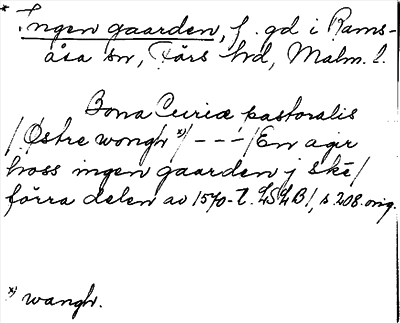 * Ingen gaarden, f. gd i Rams-
åsa sn, Färs hrd, Malm. l.
Bona Curiæ pastoralis
/Østre wongh x)/ - - - /En agir
hoss ingen gaarden j ske/
förra delen av 1570-t. LSLB/, s. 208. orig.
x) wangh.